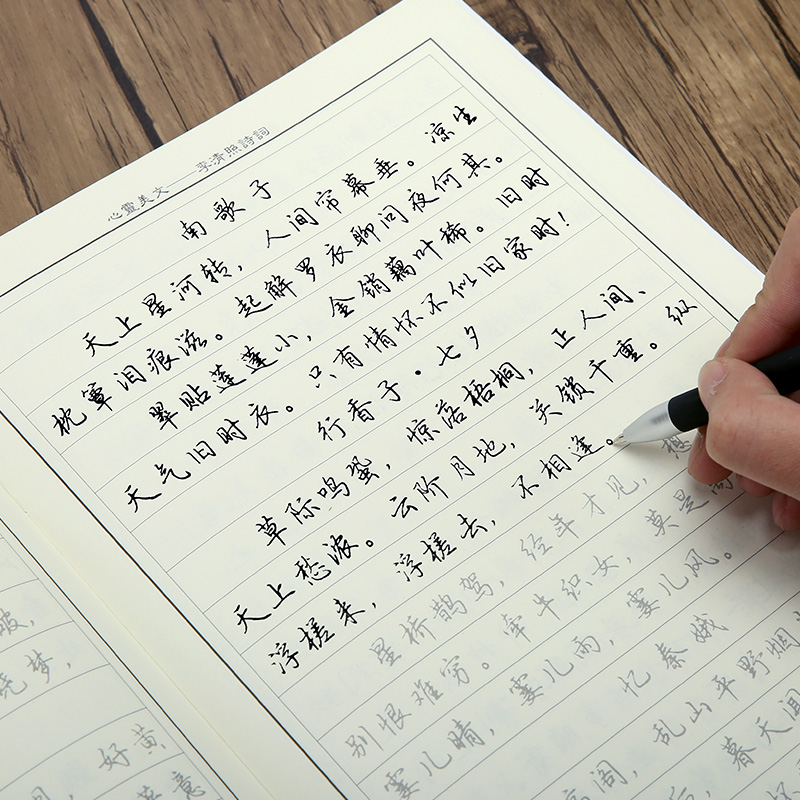 心靈美文——李清照詩詞
南歌子
天上星河转，人间帘幕垂。凉生
枕簟泪痕滋。起解罗衣聊问夜何其。
翠贴莲蓬小，金销藕叶稀。旧时
天气旧时衣。只有情怀不似旧家时！
行香子·七夕
草际鸣蛩，惊落梧桐，正人间、
天上愁浓。云阶月地，关锁千重。纵
浮槎来，浮槎去，不相逢。
星桥鹊驾，经年才见，想
别恨难穷。牵牛织女，莫是
霎儿晴，霎儿雨，霎儿风。
忆秦娥
高阁，乱山平野烟
暮天闻
晓梦，
好黄
意